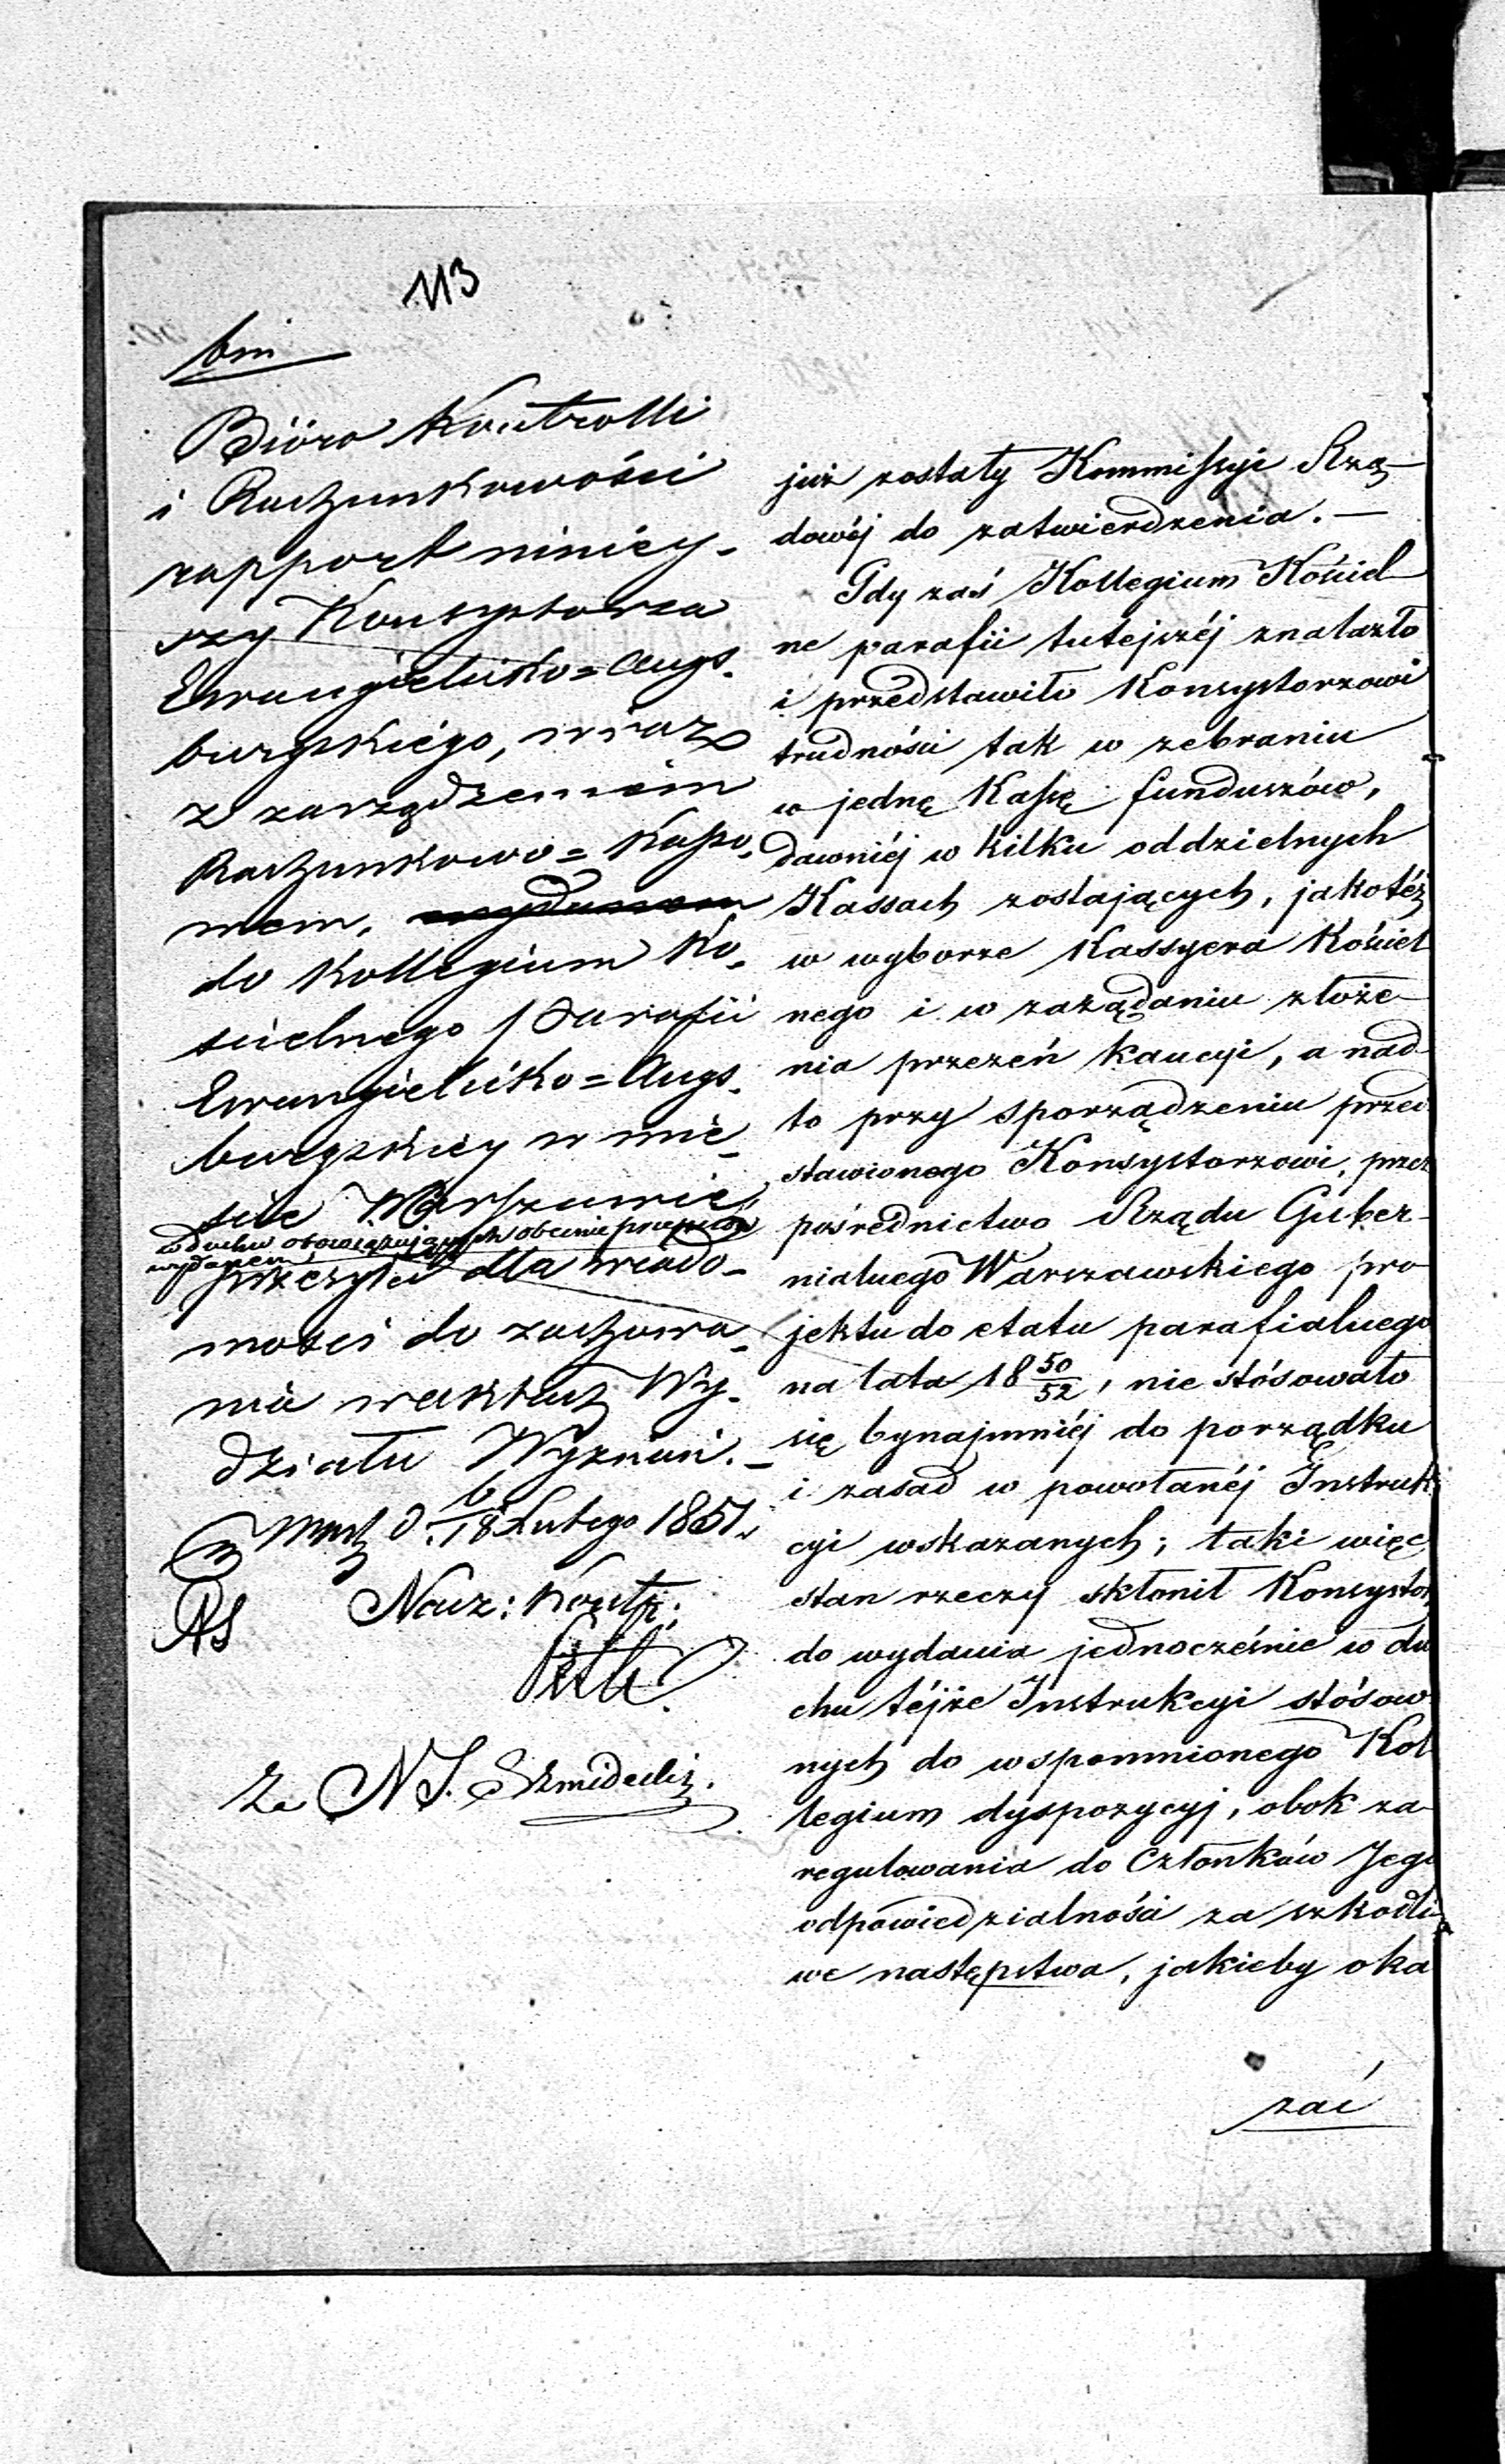 113
Bióro Kontrolli
i Rachunkowości
rapport niniey-
szy Konsystorza
Ewangielicko=Augs-
burgskiégo, wraz
z zarządzeniem
Rachunkowo=Kasso-
wem, wydanem
do Kollegium Ko-
ścielnego Parafii
Ewangielicko=Augs-
burgskiey w mie-
ście Warszawie,
w duchu obowiązujących obecnie przepisów
wydanem
przesyła dla wiado-
mości do zachowa-
nia w aktach Wy-
działu Wyznań.—
d. 6/18 Lutego 1851 r.
Nacz: Kontr:
Za N S. Szmideckiz.
już zostały Kommissyi Rzą-
dowéj do zatwierdzenia.—
Gdy zaś Kollegium Kościel-
ne parafii tutejszéj znalazło
i przedstawiło Konsystorzowi
trudności tak w zebraniu
w jednę Kassę funduszów,
dawniéj w kilku oddzielnych
Kassach zostających, jakotéż
w wyborze Kassyera Kościel
nego i w zażądaniu złoże-
nia przezeń kaucyi, a nad-
to przy sporządzeniu przed
stawionego Konsystorzowi, przez
pośrednictwo Rządu Guber-
nialnego Warszawskiego pro-
jektu do etatu parafialnego
na lata 18 50/52, nie stósowało
się bynajmniéj do porządku
i zasad w powołanéj Instruk
cyi wskazanych; taki więc
stan rzeczy skłonił Konsystor
do wydania jednocześnie w du
chu téjże Instrukcyi stósow
nych do wspomnionego Kol
legium dyspozycyj, obok za-
regulowania do Członków Jego
odpowiedzialności za szkodli
we następstwa, jakieby oka
zać